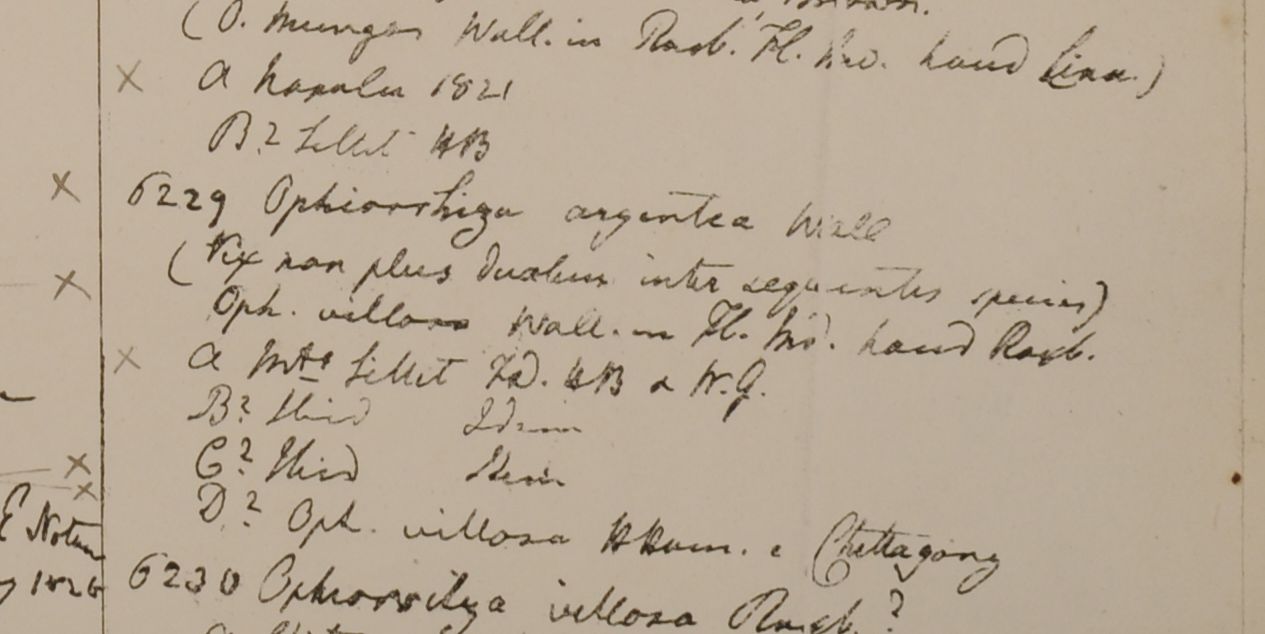 (O. Mungos Wall. in Roxb. Fl. Ind. haud Linn.)
× a 1821
B? Sillet HB
× 6229 Ophiorrhiza argentea Wall
(Vix non plus duabus inter sequentes species)
× Oph. villosa Wall. in Fl. Ind. haud Roxb.
× a Mts Sillet FD. HB & W.G.
B? Ibid Idem
C? Ibid Idem
× D? Oph. villosa HHam. e Chittagong
E Notan
1826
6230 Ophiorrhiza villosa Roxb.?